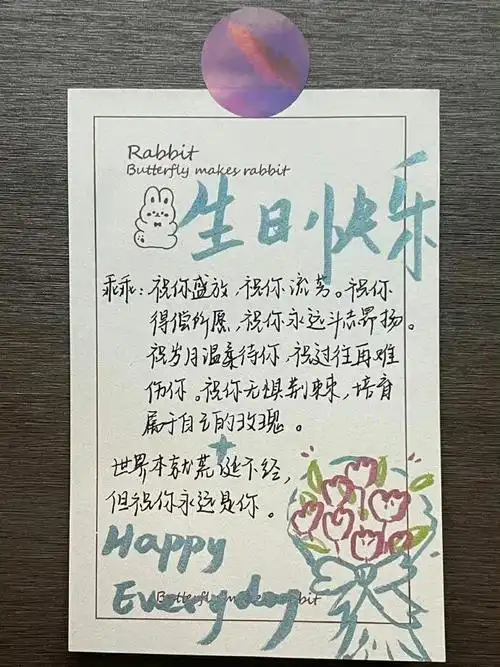 Rabbit
Butterfly makes rabbit
生日快乐
乖乖：祝你盛放，祝你流芳。祝你
得偿所愿，祝你永远斗志昂扬。
祝岁月温柔待你，祝过往再难
伤你。祝你无惧荆棘，培育
属于自己的玫瑰。
世界本就荒诞不经，
但祝你永远是你。
Happy
Everyday
Butterfly makes rabbit